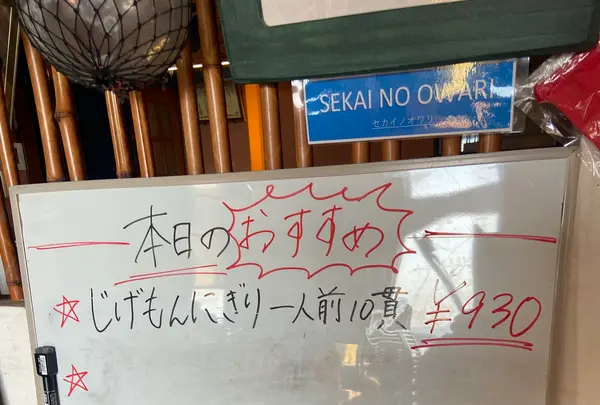 SEKAI NO OWARI
セカイノオワリ
本日のおすすめ
☆じげもんにぎり一人前10貫 ¥930
☆